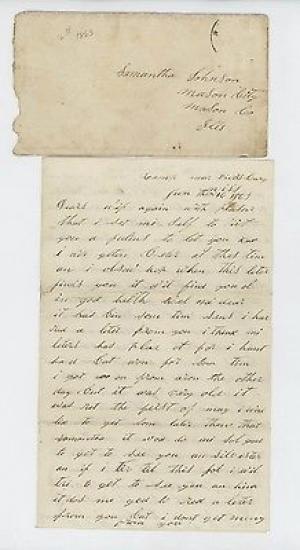 1863
Samantha Johnson
Mason City
Mason Co
Ills
Camp near Vicks Burg
Jun the 16 1863
Dear wif again with
that i set mi self to rit
you a to let you know
i are yet at this tim
an i when this leter
finds you it will find you al
in god helth well old dear
it has bin som tim since i hav
red a leter from you i think mi
leters has play out for i hant
had but won for som tim
i got won from aron the other
day but it was very old it
was rot the first of may i wod
lik to get som later then that
samantha it wod do me
to get to see you an silvester
an if i ter til this fol i will
tri to get to see you an him
it dos me god to red a leter
from you but i dont get many
from you